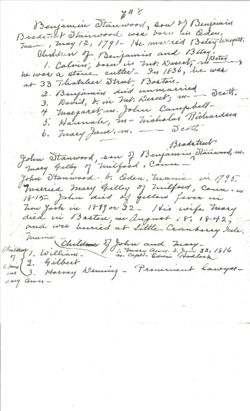 Benjamin Stanwood, son of Benjamin
Bradstreet Stanwood was born in Eden,
Maine, May 12, 1791. He married Betsy
Children of Benjamin and Betsy
1. Calvin; born in Mt. Desert, m.
he was a stone cutter. In 1836, he was
at 33 Thatcher Street, Boston.
2. Benjamin died unmarried
3. David, b. in Mt. Desert, m. — Scott
4. Margaret m. John Campbell
5. Hannah, m. Nicholas Richardson
6. Mary Jane, m. — Scott
Bradstreet
John Stanwood, son of Benjamin Stanwood, m.
Mary Gilley of Milford, Conn.
John Stanwood b. Eden, Maine in 1795.
Married Mary Gilley of Milford, Conn. in
1815. John died of yellow fever in
New York in 1829 or 32 — His wife Mary
died in Boston, August 18, 1842,
and was buried at Little Cranberry Isle,
Maine
Children of John and Mary
1. William
2. Gilbert
3. Harvey Deming — Prominent Lawyer
Mary Ann